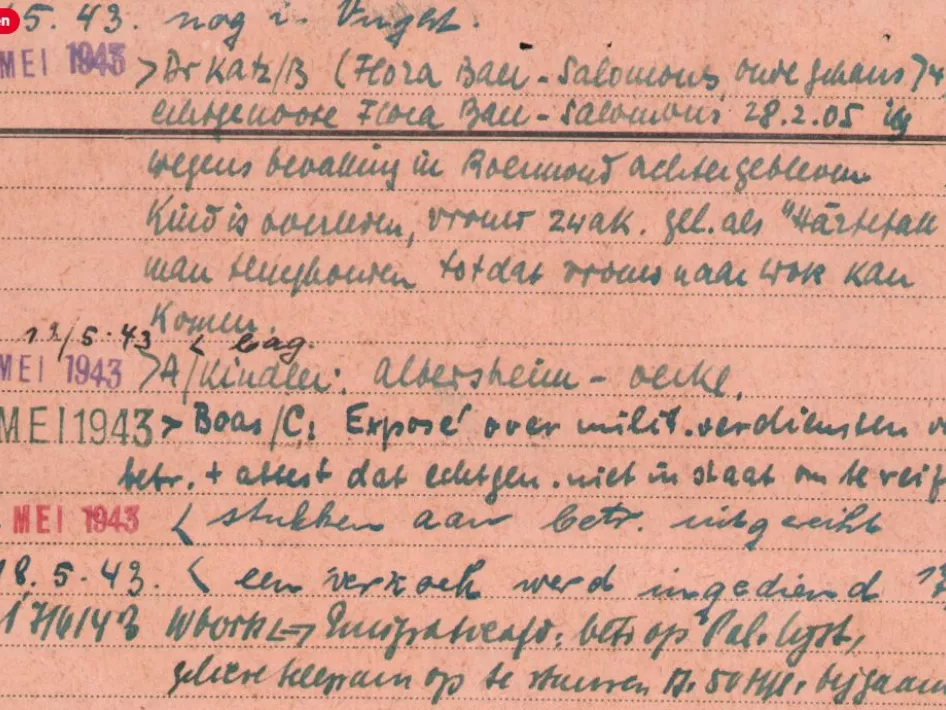 en
5.43. nog in Vught.
MEI 1943 >Dr Katz/B (Flora Baer-Salomons,
echtgenoote Flora Baer-Salomons 28.2.05
wegens bevalling in Roermond achtergebleven
Kind is overleden, vrouw zwak. gel. als "Härtefall
man terughouden totdat vrouw naar Wbk kan
Komen.
12/5.43 < bag.
MEI 1943 >A/Kindler: Albersheim -
MEI 1943 > Boas/C: Exposé over milit. verdiensten
betr. + attest dat echtgen. niet in staat om te reiz
MEI 1943 < stukken aan betr. uitgereikt
18.5.43. < een verzoek werd ingediend
17/6/43 betr op Pal. lyst,
gelieve telegram op te sturen